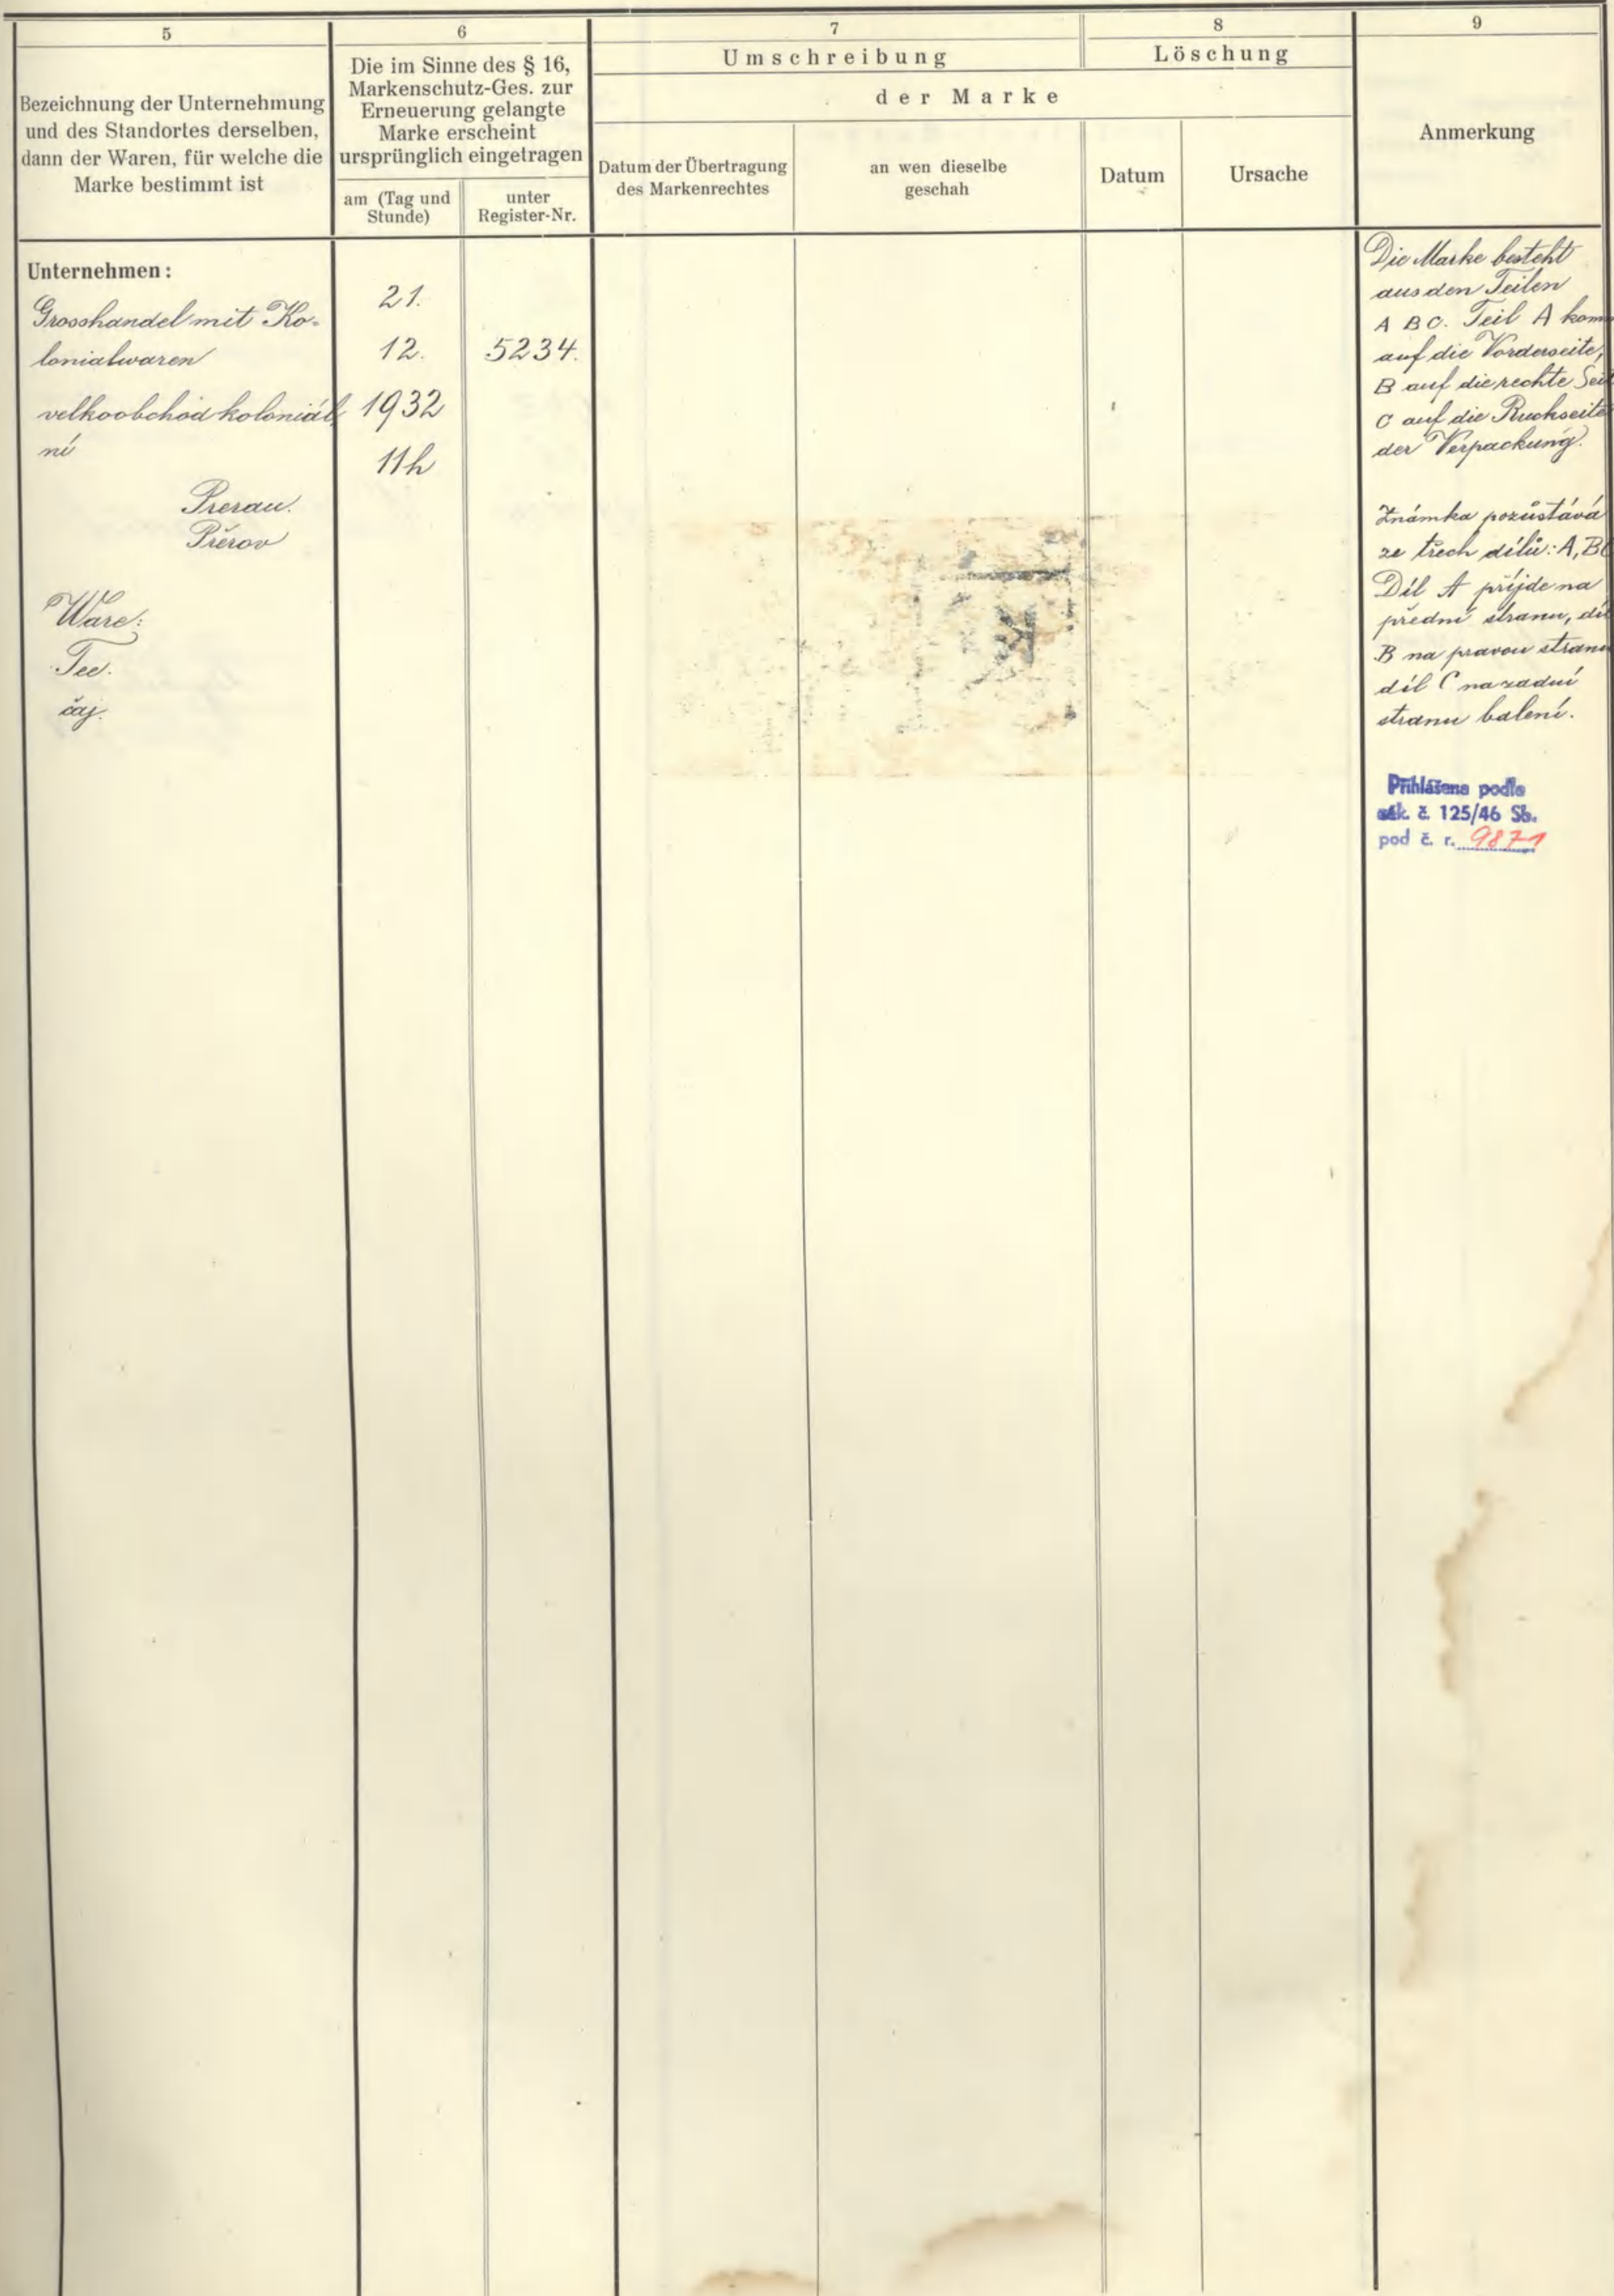 5
Bezeichnung der Unternehmung
und des Standortes derselben,
dann der Waren, für welche die
Marke bestimmt ist
6
Die im Sinne des § 16,
Markenschutz-Ges. zur
Erneuerung gelangte
Marke erscheint
ursprünglich eingetragen
am (Tag und
Stunde)
unter
Register-Nr.
7
Umschreibung
8
Löschung
der Marke
Datum der Übertragung
des Markenrechtes
an wen dieselbe
geschah
Datum
Ursache
9
Anmerkung
Unternehmen:
Grosshandel mit Ko-
lonialwaren
velkoobchod koloniál
ní
Prerau.
Přerov
Ware:
Tee.
čaj.
21.
12.
1932
11h
5234.
Die Marke besteht
aus den Teilen
A B C. Teil A kom
auf die Vorderseite,
B auf die rechte Sei
C auf die Ruckseite
der Verpackung.
Známka pozůstává
ze třech dílů: A, B
Díl A příjde na
přední stranu, díl
B na pravou stranu
díl C na zadní
stranu balení.
Přihlášena podle
zák. č. 125/46 Sb.
pod č. r. 9871